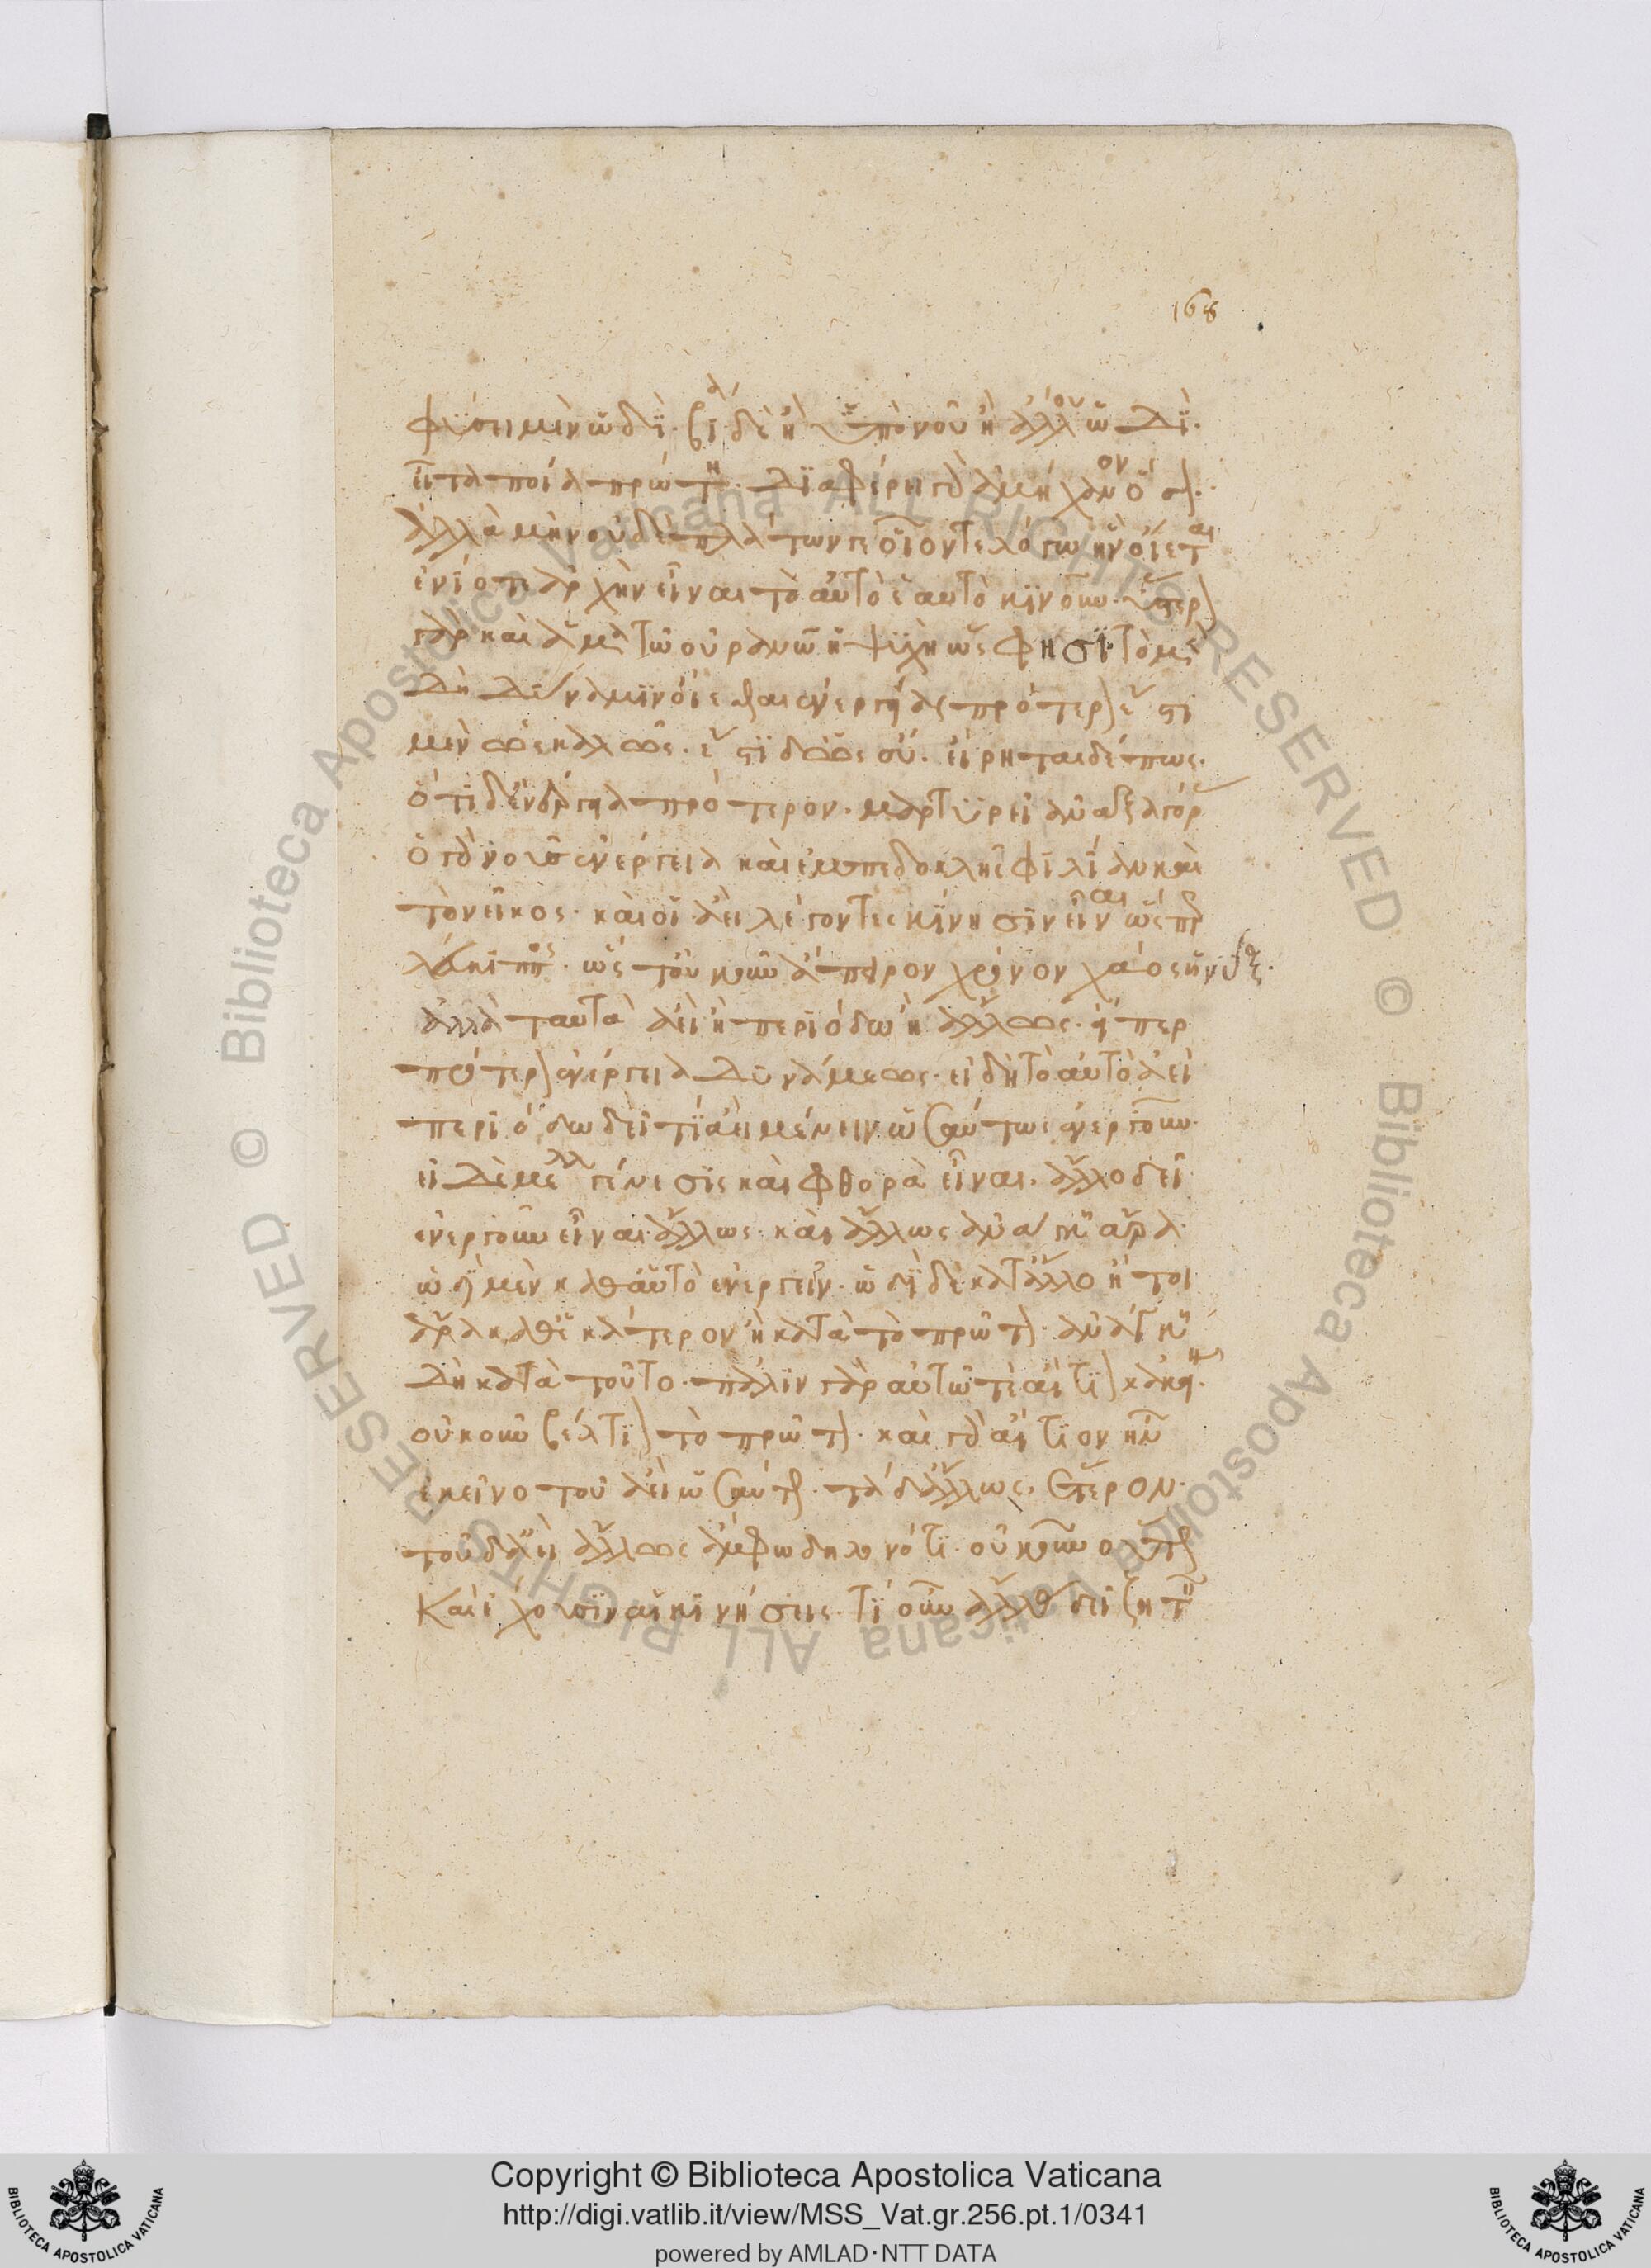 168
φύσει μὲν ὡδί. βίᾳ δὲ ἢ ὑπὸ νοῦ ἢ ἄλλου ὡδί.
εἶτα ποία πρώτη. διαφέρει γὰρ ἀμήχανον ὅσον.
ἀλλὰ μὴν οὐδὲ πλάτωνι γε οἷόν τε λέγειν ἣν οἴεται
ἐνίοτε ἀρχὴν εἶναι τὸ αὐτὸ ἑαυτὸ κινοῦν. ὕστερον
γὰρ καὶ ἅμα τῷ οὐρανῷ ἡ ψυχὴ ὥς φησί. τὸ μὲν
δὴ δύναμιν οἴεσθαι ἐνεργείας πρότερον ἔστι
μὲν ὡς καλῶς. ἔστι δ' ὡς οὔ. εἴρηται δέ πως.
ὅτι δ' ἐνέργεια πρότερον. μαρτυρεῖ ἀναξαγόρας
ὁ γὰρ νοῦς ἐνέργεια καὶ ἐμπεδοκλῆς φιλίαν καὶ
τὸ νεῖκος. καὶ οἱ ἀεὶ λέγοντες κίνησιν εἶναι ὥσπερ
λεύκιππος. ὥστ' οὐκ ἦν ἄπειρον χρόνον χάος ἢ νύξ.
ἀλλὰ ταὐτὰ ἀεὶ ἢ περιόδῳ ἢ ἄλλως. εἴπερ
πρότερον ἐνέργεια δυνάμεως. εἰ δὴ τὸ αὐτὸ ἀεὶ
περιόδῳ δεῖ τι ἀεὶ μένειν ὡσαύτως ἐνεργοῦν.
εἰ δὲ μέλλει γένεσις καὶ φθορὰ εἶναι. ἄλλο δεῖ
ἐνεργοῦν εἶναι ἄλλως. καὶ ἄλλως ἀνάγκη ἄρα
ὡδὶ μὲν καθ' αὑτὸ ἐνεργεῖν. ὡδὶ δὲ κατ' ἄλλο ἤτοι
ἄρα καθ' ἕτερον ἢ κατὰ τὸ πρῶτον. ἀνάγκη
δὴ κατὰ τοῦτο. πάλιν γὰρ αὐτῷ τε αἴτιον κἀκείνῳ.
οὐκοῦν βέλτιον τὸ πρῶτον. καὶ γὰρ αἴτιον ἦν
ἐκεῖνο τοῦ ἀεὶ ὡσαύτως. τὰ δ' ἄλλως, ἕτερον.
τοῦ δ' ἀεὶ ἄλλως ἄμφω δηλονότι. οὐκοῦν οὕτως
καὶ ἔχουσιν αἱ κινήσεις. τί οὖν ἄλλας δεῖ ζητεῖν
Copyright © Biblioteca Apostolica Vaticana
http://digi.vatlib.it/view/MSS_Vat.gr.256.pt.1/0341
powered by AMLAD·NTT DATA